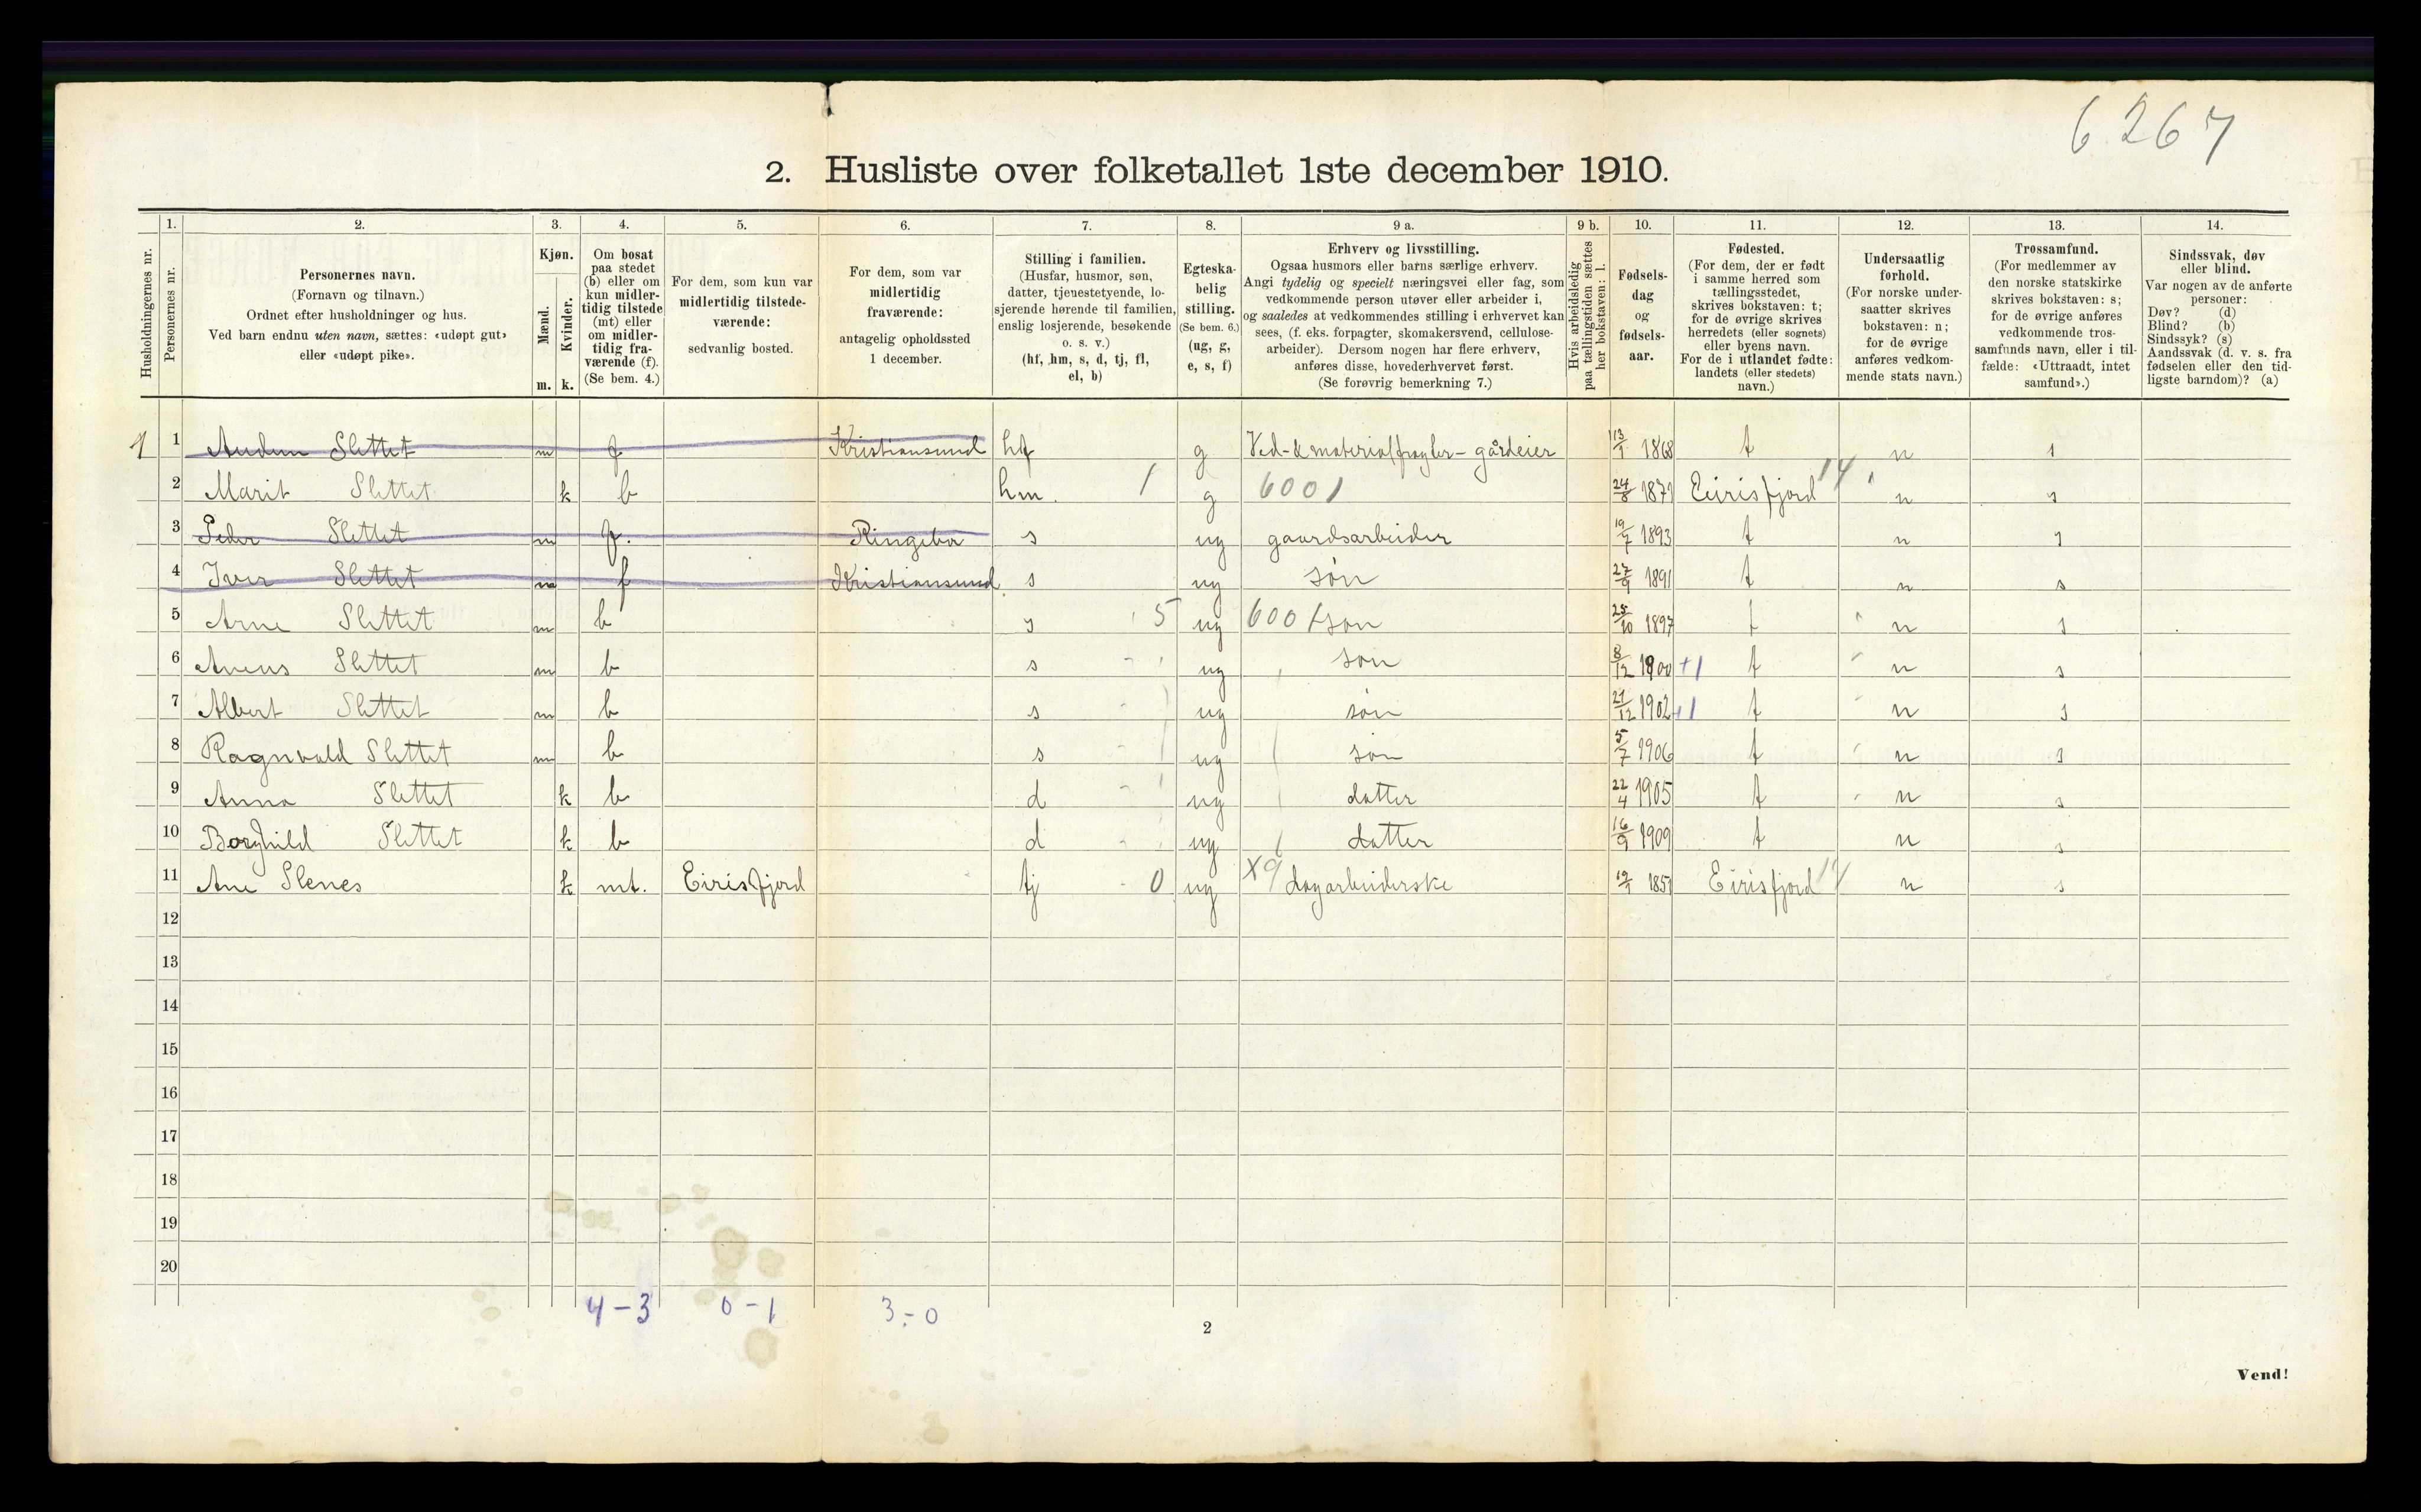 6267
2. Husliste over folketallet 1ste december 1910.
Husholdningernes nr.
1. Personernes nr.
2. Personernes navn.
(Fornavn og tilnavn.)
Ordnet efter husholdninger og hus.
Ved barn endnu uten navn, sættes: «udøpt gut»
eller «udøpt pike».
3. Kjøn.
Mænd. m.
Kvinder. k.
4. Om bosat
paa stedet
(b) eller om
kun midler-
tidig tilstede
(mt) eller
om midler-
tidig fra-
værende (f).
(Se bem. 4.)
5. For dem, som kun var
midlertidig tilstede-
værende:
sedvanlig bosted.
6. For dem, som var
midlertidig
fraværende:
antagelig opholdssted
1 december.
7. Stilling i familien.
(Husfar, husmor, søn,
datter, tjenestetyende, lo-
sjerende hørende til familien,
enslig losjerende, besøkende
o. s. v.)
(hf, hm, s, d, tj, fl,
el, b)
8. Egteska-
belig
stilling.
(Se bem. 6.)
(ug, g,
e, s, f)
9 a. Erhverv og livsstilling.
Ogsaa husmors eller barns særlige erhverv.
Angi tydelig og specielt næringsvei eller fag, som
vedkommende person utøver eller arbeider i,
og saaledes at vedkommendes stilling i erhvervet kan
sees, (f. eks. forpagter, skomakersvend, cellulose-
arbeider). Dersom nogen har flere erhverv,
anføres disse, hovederhvervet først.
(Se forøvrig bemerkning 7.)
9 b. Hvis arbeidsledig
paa tællingstiden sættes
her bokstaven: l.
10. Fødsels-
dag
og
fødsels-
aar.
11. Fødested.
(For dem, der er født
i samme herred som
tællingsstedet,
skrives bokstaven: t;
for de øvrige skrives
herredets (eller sognets)
eller byens navn.
For de i utlandet fødte:
landets (eller stedets)
navn.)
12. Undersaatlig
forhold.
(For norske under-
saatter skrives
bokstaven: n;
for de øvrige
anføres vedkom-
mende stats navn.)
13. Trossamfund.
(For medlemmer av
den norske statskirke
skrives bokstaven: s;
for de øvrige anføres
vedkommende tros-
samfunds navn, eller i til-
fælde: «Uttraadt, intet
samfund».)
14. Sindssvak, døv
eller blind.
Var nogen av de anførte
personer:
Døv? (d)
Blind? (b)
Sindssyk? (s)
Aandssvak (d. v. s. fra
fødselen eller den tid-
ligste barndom)? (a)
1 1 Audun Slettet m f Kristiansund hf g gårdeier 13/1 1868 t n s
2 Marit Slettet k b hm. 1 g 6001 24/8 1871 Eirisfjord 14 n s
3 Peder Slettet m f. Ringebu s ug gaardsarbeider 19/7 1893 t n s
4 Iver Slettet m f Kristiansund s ug søn 27/9 1891 t n s
5 Arne Slettet m b s 5 ug 6001 søn 25/10 1897 t n s
6 Slettet m b s ug søn 8/12 1900 +1 t n s
7 Albert Slettet m b s ug søn 21/12 1902 +1 t n s
8 Ragnvald Slettet m b s ug søn 5/7 1906 t n s
9 Anna Slettet k b d ug datter 22/4 1905 t n s
10 Borghild Slettet k b d ug datter 16/9 1909 t n s
11 Ane Slenes k mt. Eirisfjord tj 0 ug X9 dagarbeiderske 1851 Eirisfjord 14 n s
12
13
14
15
16
17
18
19
20
4-3 0-1 3-0
2
Vend!